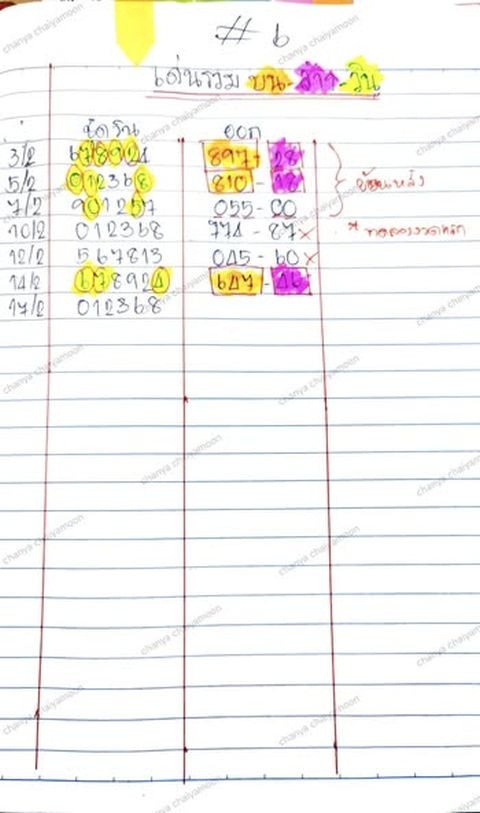 # 6
เด่นรวม บน-ล่าง-วิน
ชุดวิน ออก
3/2 678924 897-28
5/2 012368 810-18
7/2 901257 055-00
10/2 012368 774-87 x
12/2 567813 045-60 x
14/2 678924 647-46
17/2 012368
ย้อนหลัง
chanya chaiyamoon